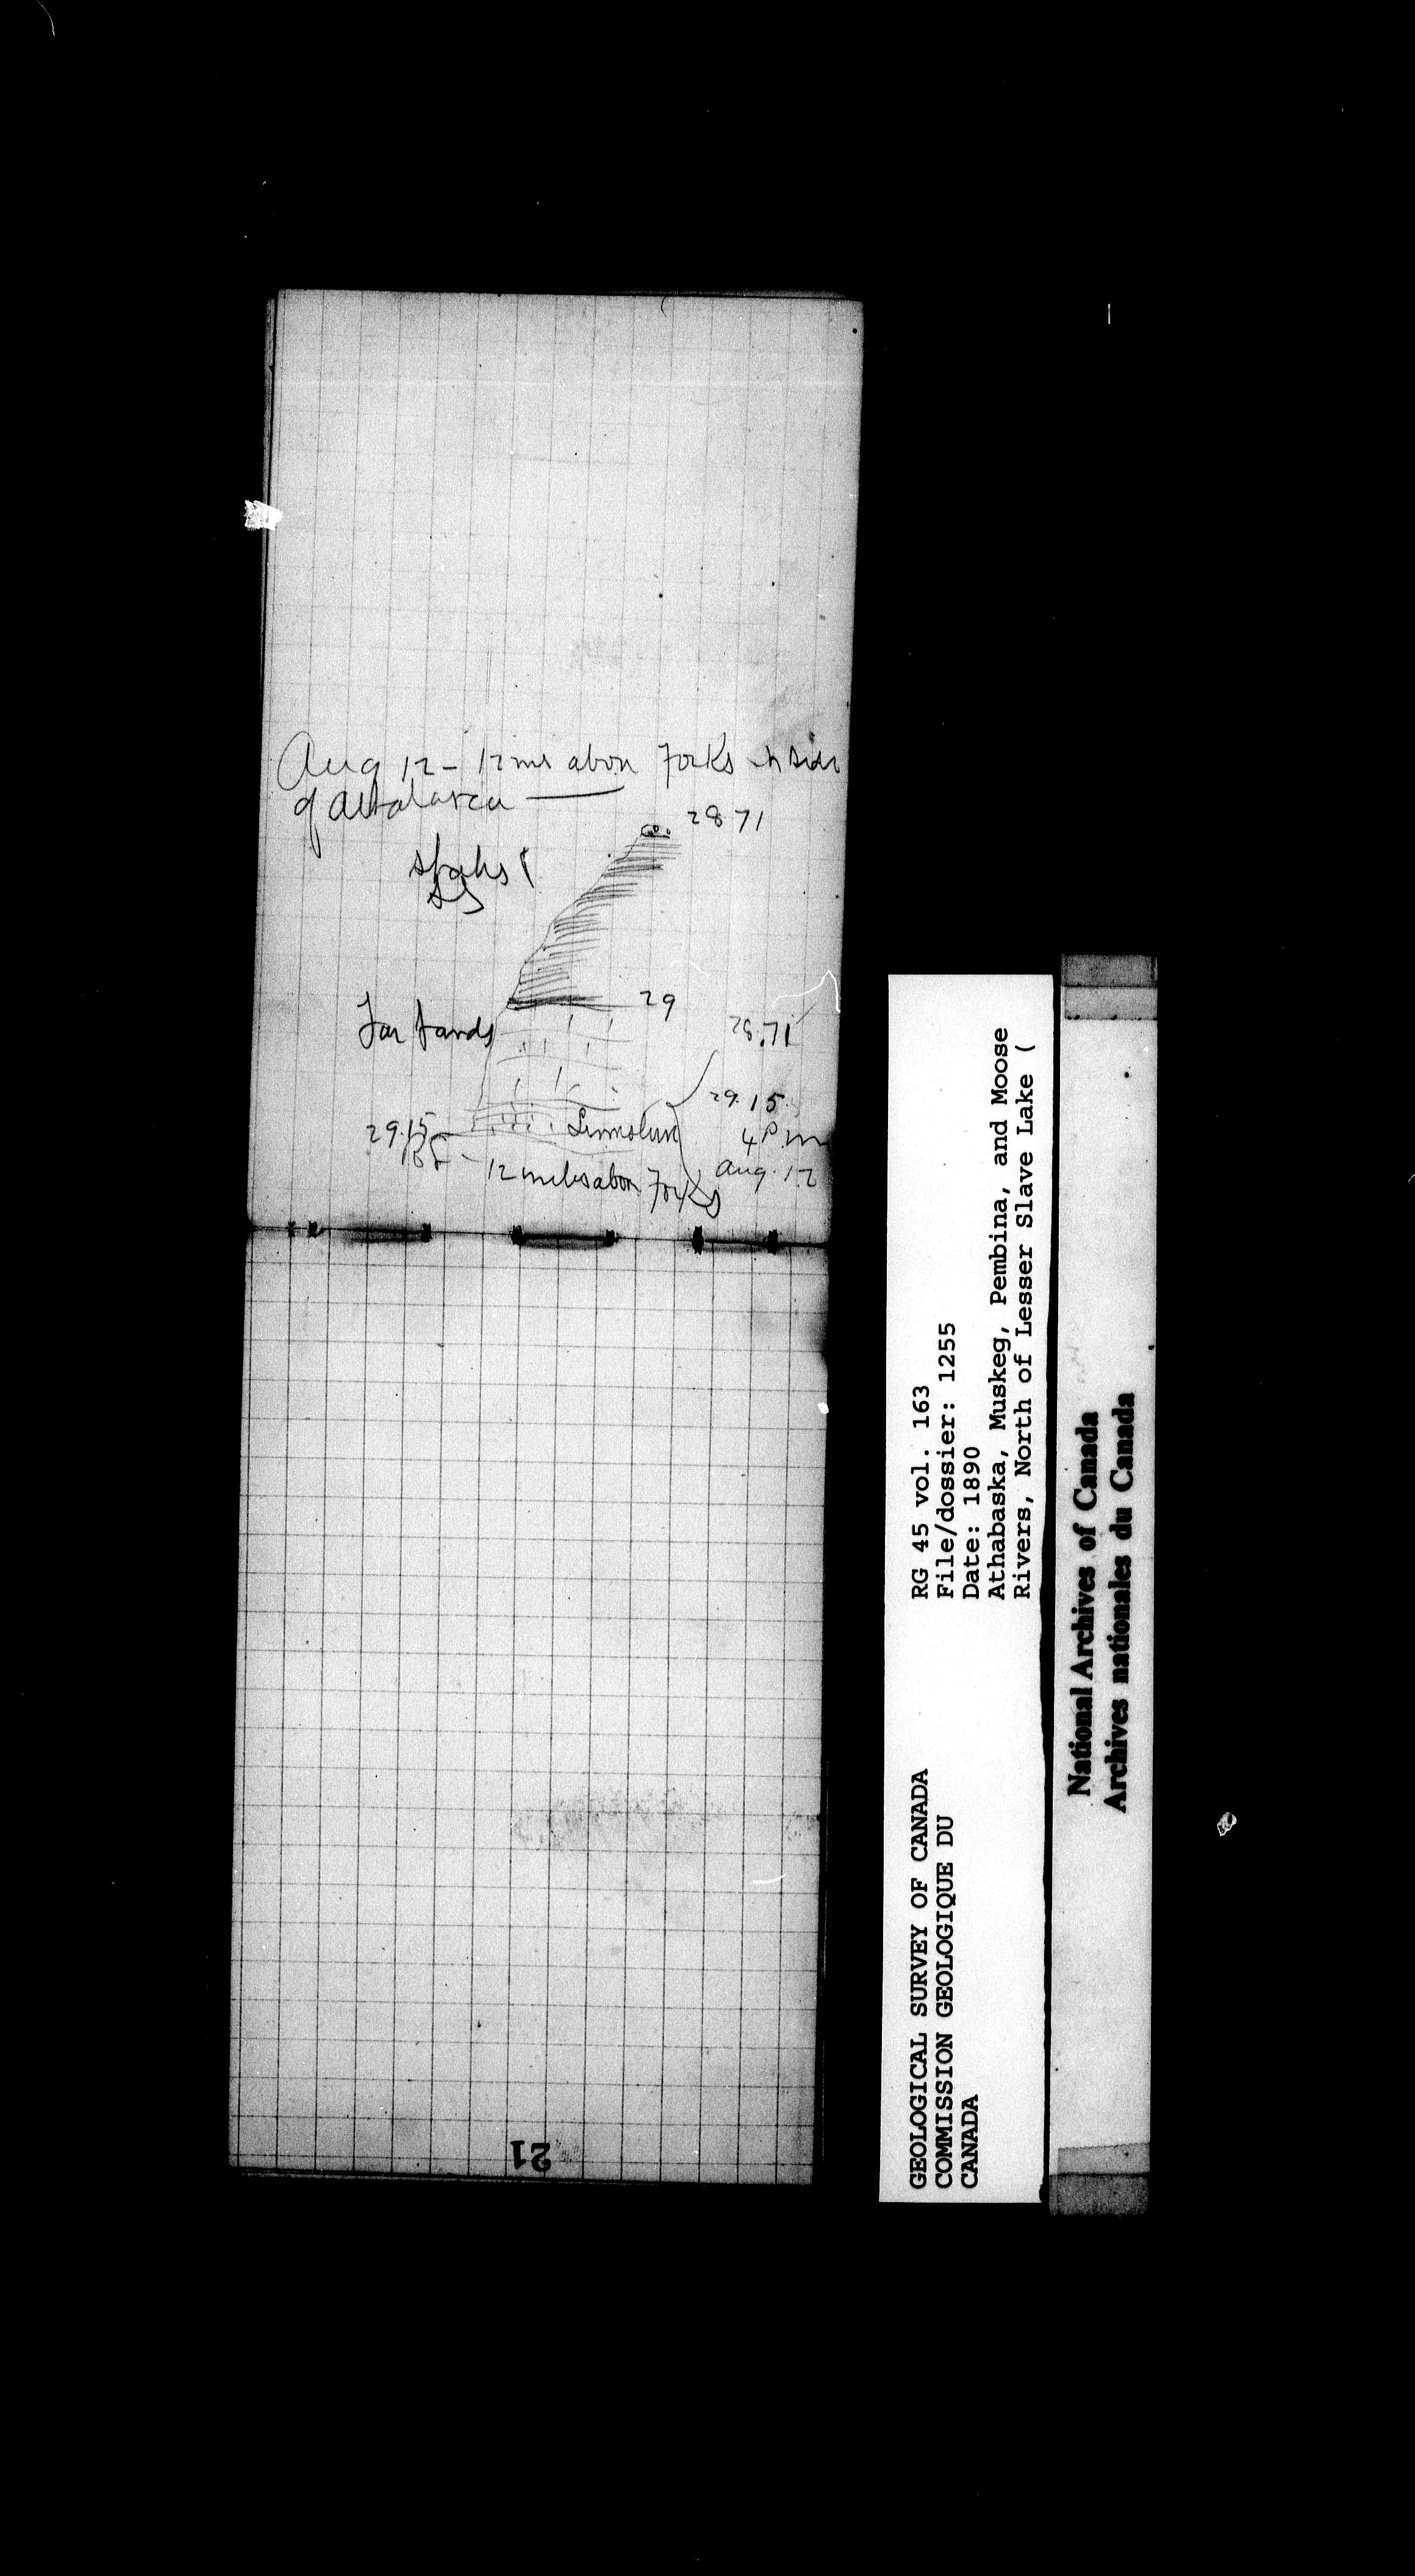 Aug 12 - 12 mls above Forks n side
of Athabasca
28 71
shales &
SS
29
Tar Sands
28.71
29.15
29.15
Limestone
4 P.m
Aug. 12
12 miles above Forks
21
RG 45 vol. 163
File/dossier: 1255
Date: 1890
Athabaska, Muskeg, Pembina, and Moose
Rivers, North of Lesser Slave Lake (
GEOLOGICAL SURVEY OF CANADA
COMMISSION GEOLOGIQUE DU
CANADA
National Archives of Canada
Archives nationales du Canada